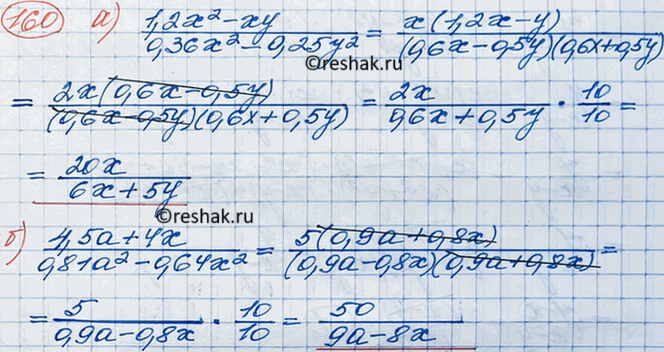 160 а) (1,2x² - xy)/(0,36x² - 0,25y²) = x(1,2x - y)/((0,6x - 0,5y)(0,6x + 0,5y))
©reshak.ru
= 2x(0,6x - 0,5y)/((0,6x - 0,5y)(0,6x + 0,5y)) = 2x/(0,6x + 0,5y) · 10/10 =
= 20x/(6x + 5y)
©reshak.ru
б) (4,5a + 4x)/(0,81a² - 0,64x²) = 5(0,9a + 0,8x)/((0,9a - 0,8x)(0,9a + 0,8x)) =
= 5/(0,9a - 0,8x) · 10/10 = 50/(9a - 8x)